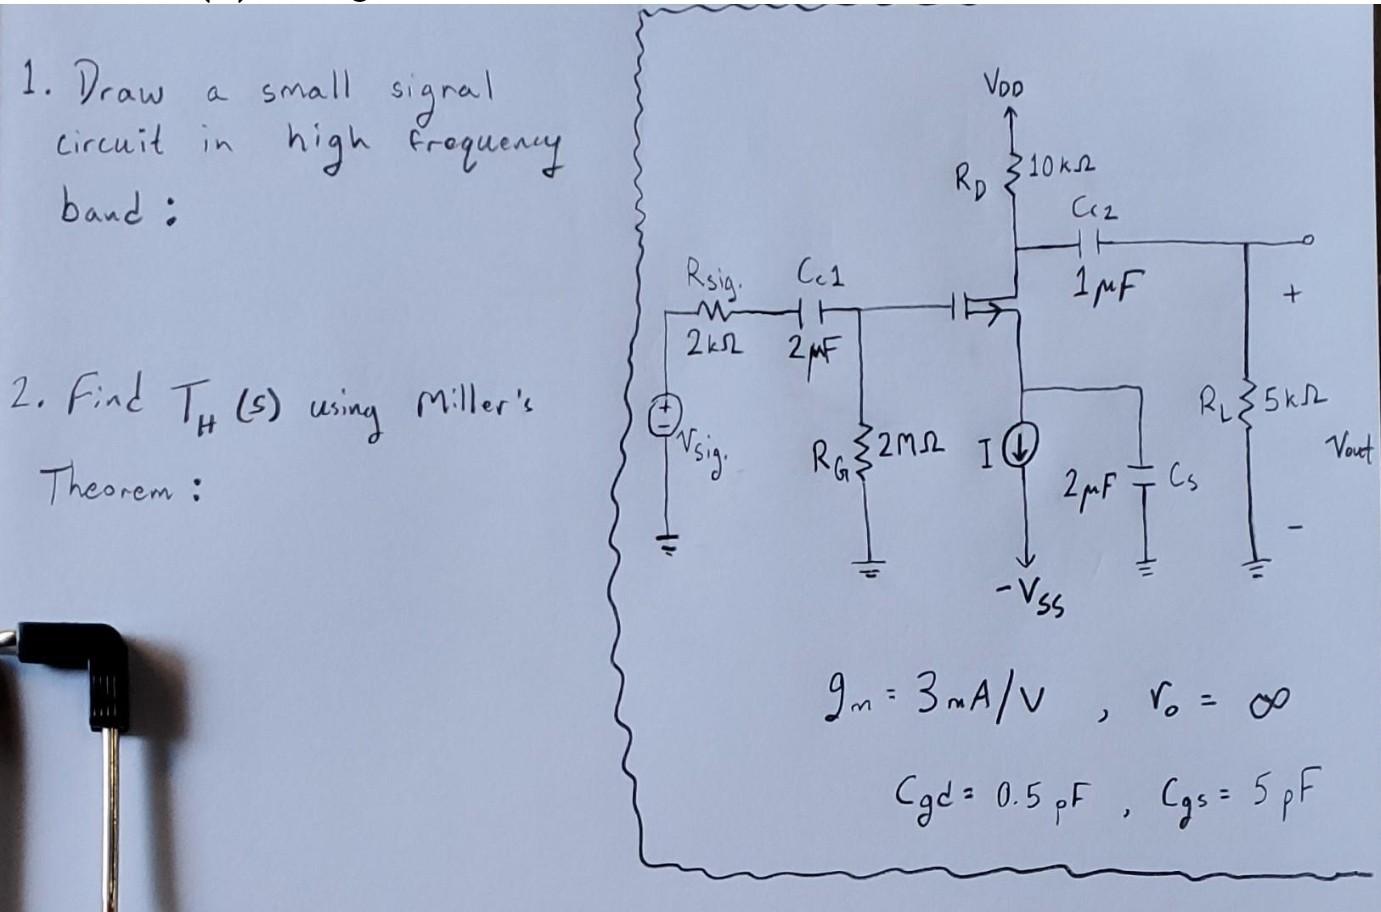 1. Draw a small signal
circuit in high frequency
band :
2. Find T_H (s) using Miller's
Theorem :
V_DD
R_D 10 kΩ
Cc2
1 μF
Rsig. Cc1
2 kΩ 2 μF
+
-
Vsig.
R_G 2MΩ
I
2 μF Cs
R_L 5 kΩ
+
Vout
-
-V_SS
gm = 3 mA/V , ro = ∞
Cgd = 0.5 pF , Cgs = 5 pF